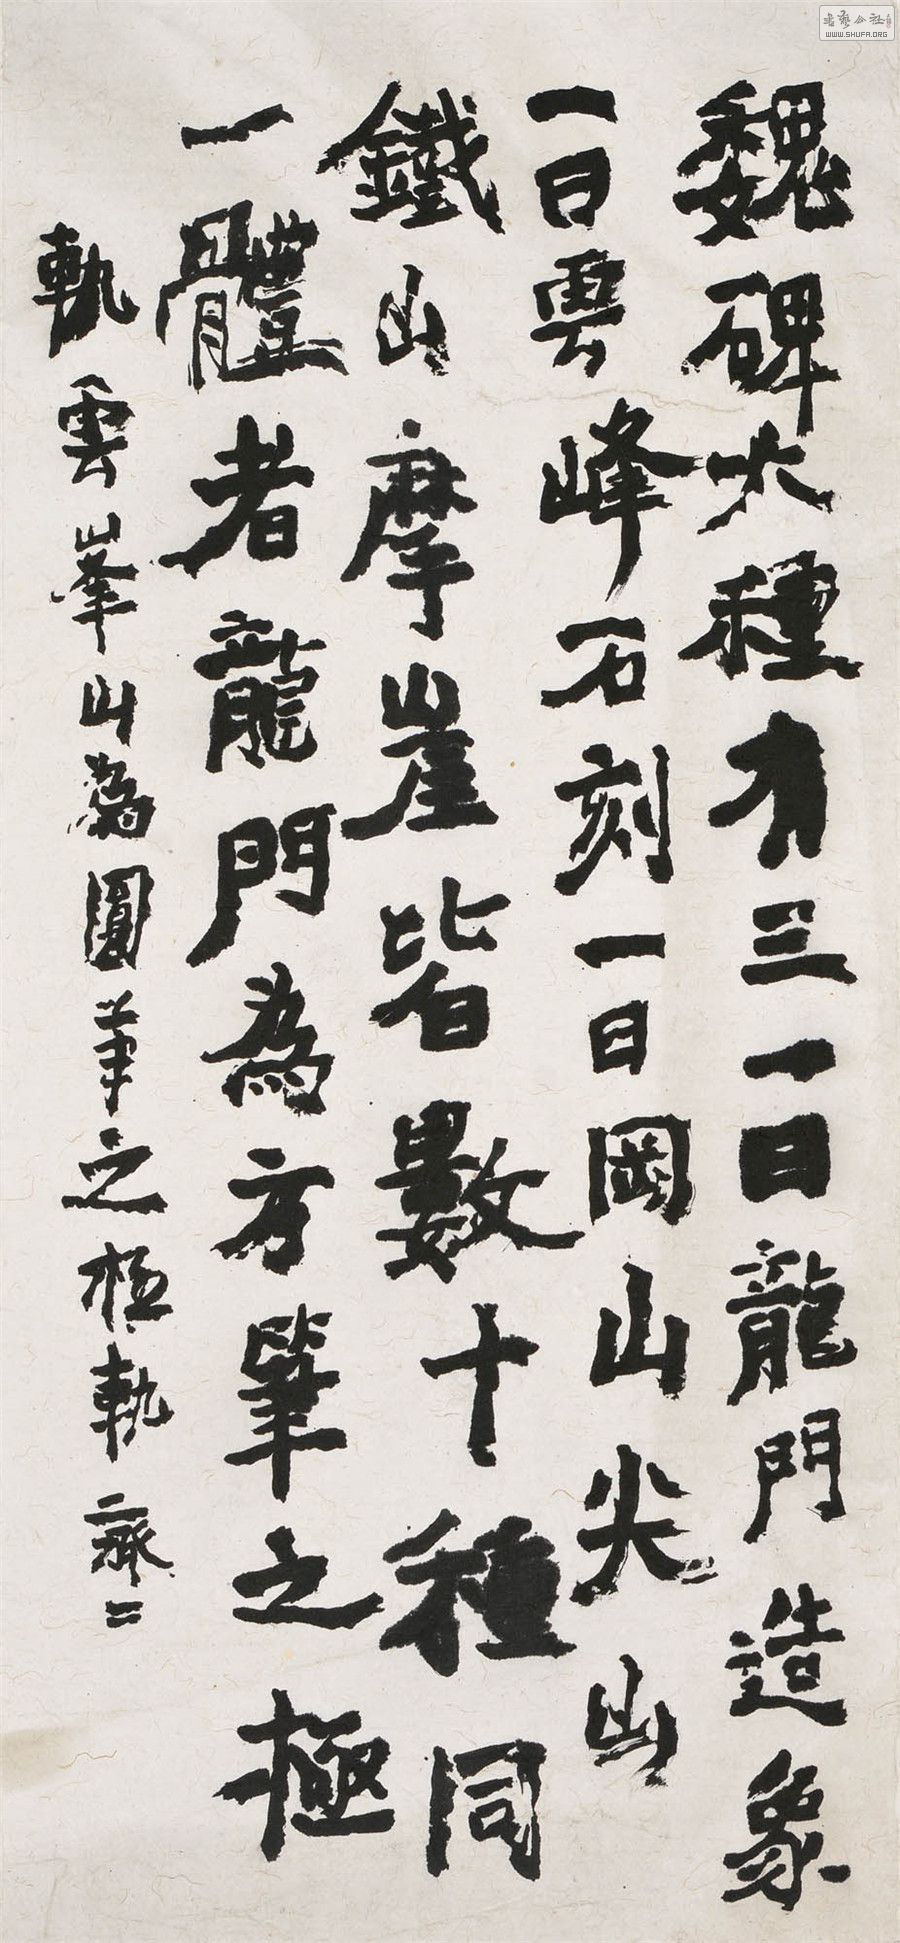 魏碑大種有三一曰龍門造象
一曰雲峰石刻一曰岡山尖山
鐵山摩崖皆數十種同
一體者龍門為方筆之極
軌雲峯山為圓筆之極軌齋二
WWW.SHUFA.ORG